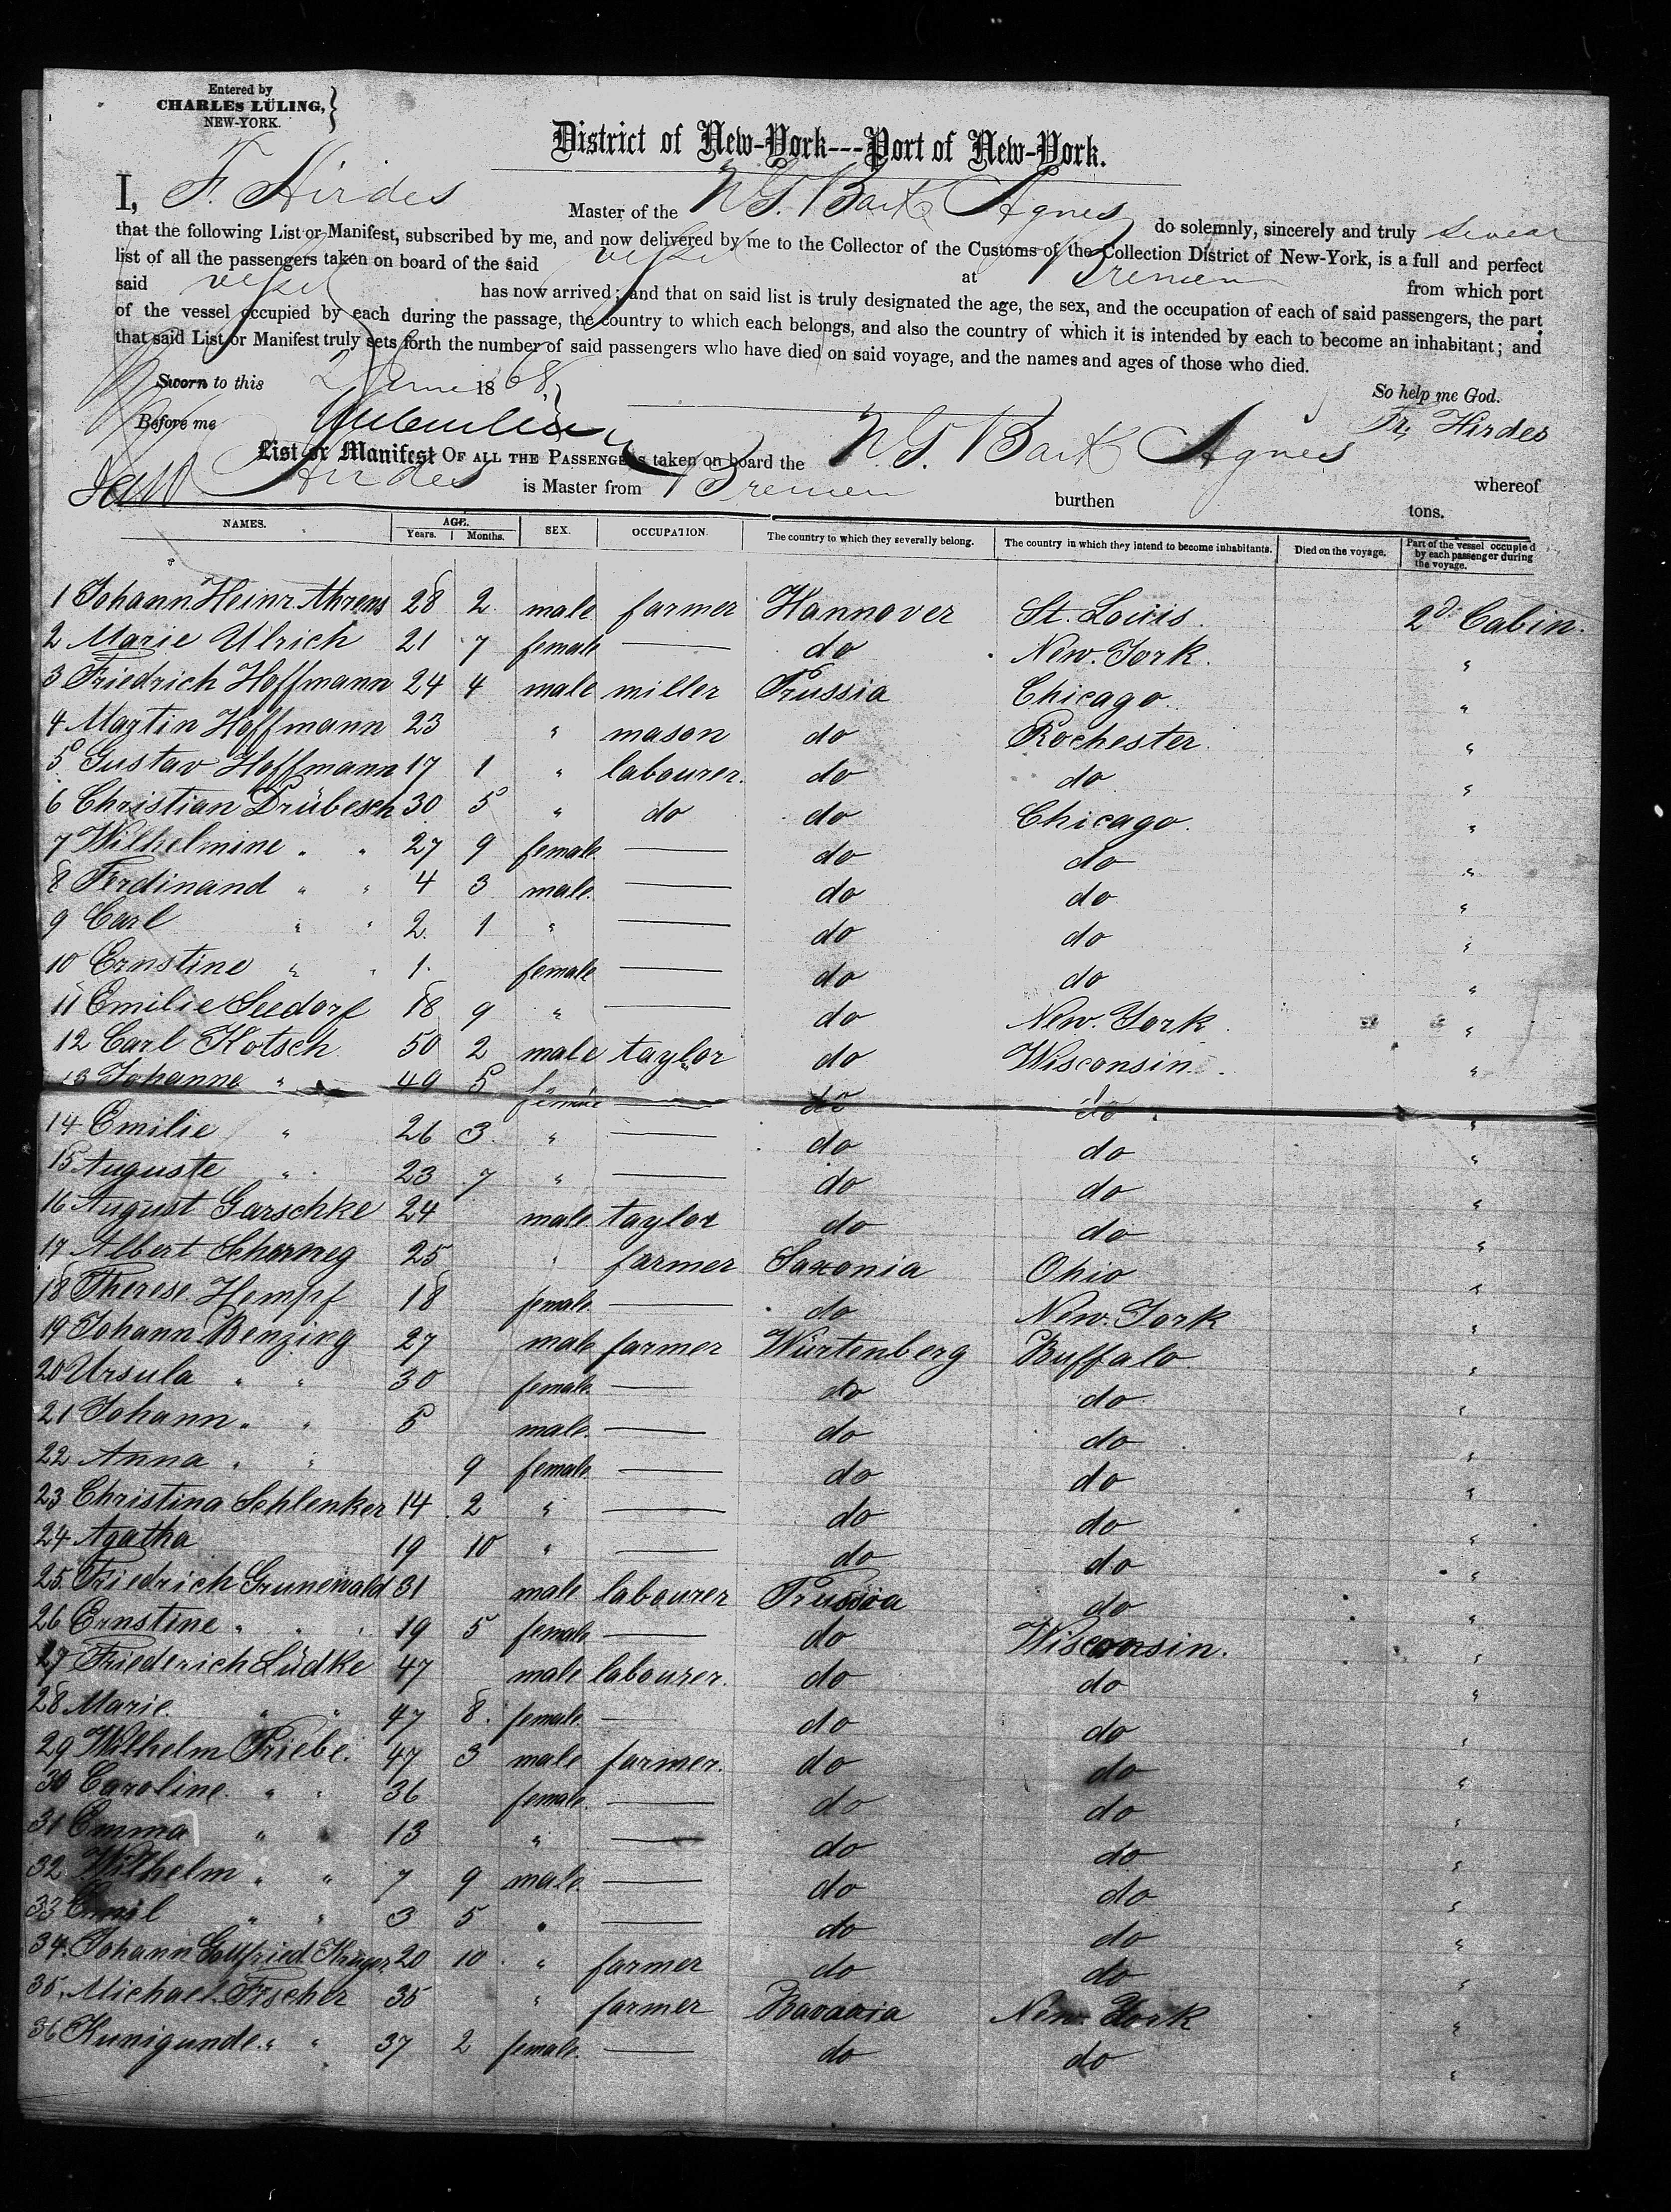 Entered by
CHARLES LÜLING,
NEW-YORK.
District of New-York---Port of New-York.
I, F. Hirdes Master of the N. G. Bark Agnes do solemnly, sincerely and truly swear
that the following List or Manifest, subscribed by me, and now delivered by me to the Collector of the Customs of the Collection District of New-York, is a full and perfect
list of all the passengers taken on board of the said vessel at Bremen from which port
said vessel has now arrived; and that on said list is truly designated the age, the sex, and the occupation of each of said passengers, the part
of the vessel occupied by each during the passage, the country to which each belongs, and also the country of which it is intended by each to become an inhabitant; and
that said List or Manifest truly sets forth the number of said passengers who have died on said voyage, and the names and ages of those who died.
Sworn to this 2 June 1868 So help me God.
Before me Fr. Hirdes
List or Manifest OF ALL THE PASSENGERS taken on board the N. G. Bark Agnes whereof
Hirdes is Master from Bremen burthen tons.
NAMES. AGE. Years. Months. SEX. OCCUPATION. The country to which they severally belong. The country in which they intend to become inhabitants. Died on the voyage. Part of the vessel occupied by each passenger during the voyage.
1 Johann Heinr. Ahrens 28 2 male farmer Hannover St. Louis. 2d Cabin.
2 Marie Ulrich 21 7 female — do New. York. "
3 Friedrich Hoffmann 24 4 male miller Prussia Chicago. "
4 Martin Hoffmann 23 " mason do Rochester. "
5 Gustav Hoffmann 17 1 " labourer. do do "
6 Christian Drübesch 30 5 " do do Chicago. "
7 Wilhelmine " " 27 9 female — do do "
8 Ferdinand " " 4 3 male. — do do "
9 Carl " " 2 1 " — do do "
10 Ernstine " " 1. female — do do "
11 Emilie Seedorf 18 9 " — do New. York "
12 Carl Kotsch 50 2 male taylor do Wisconsin. "
13 Johanne " 49 5 female — do do "
14 Emilie " 26 3. " — do do "
15 Auguste " 23 7 " — do do "
16 August Garschke 24 male taylor do do "
17 Albert 25 " farmer Saxonia Ohio "
18 Therese Hempf 18 female — do New. York "
19 Johann Benzing 27 male farmer Würtenberg Buffalo "
20 Ursula " " 30 female. — do do "
21 Johann " " 5 male. — do do "
22 Anna " " 9 female — do do "
23 Christina Schlenker 14 2 " — do do "
24 Agatha 19 10 " — do do "
25. Friedrich Grunewald 31 male labourer Prussia do "
26 Ernstine " " 19 5 female — do Wisconsin. "
27 Friederich Lüdke 47 male labourer. do do "
28 Marie " " 47 8. female. — do do "
29 Wilhelm Priebe. 47 3 male farmer. do do "
30 Caroline. " " 36 female. — do do "
31 Emma " " 13 " — do do "
32 Wilhelm " " 7 9 male. — do do "
33 Emil " " 3 5 " — do do "
34. Johann Gottfried Krüger. 20 10 " farmer do do "
35. Michael Fischer 35 " farmer Bavaria New York "
36 Kunigunde " " 37 2 female. — do do "